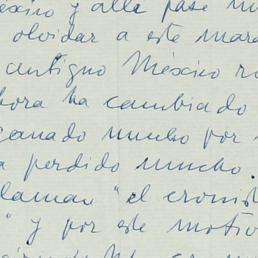 éxico y allá pasé mu
olvidar a este mara
antiguo México ro
hora ha cambiado
ganado mucho por
a perdido mucho.
llaman "el cronist
" y por este motivo